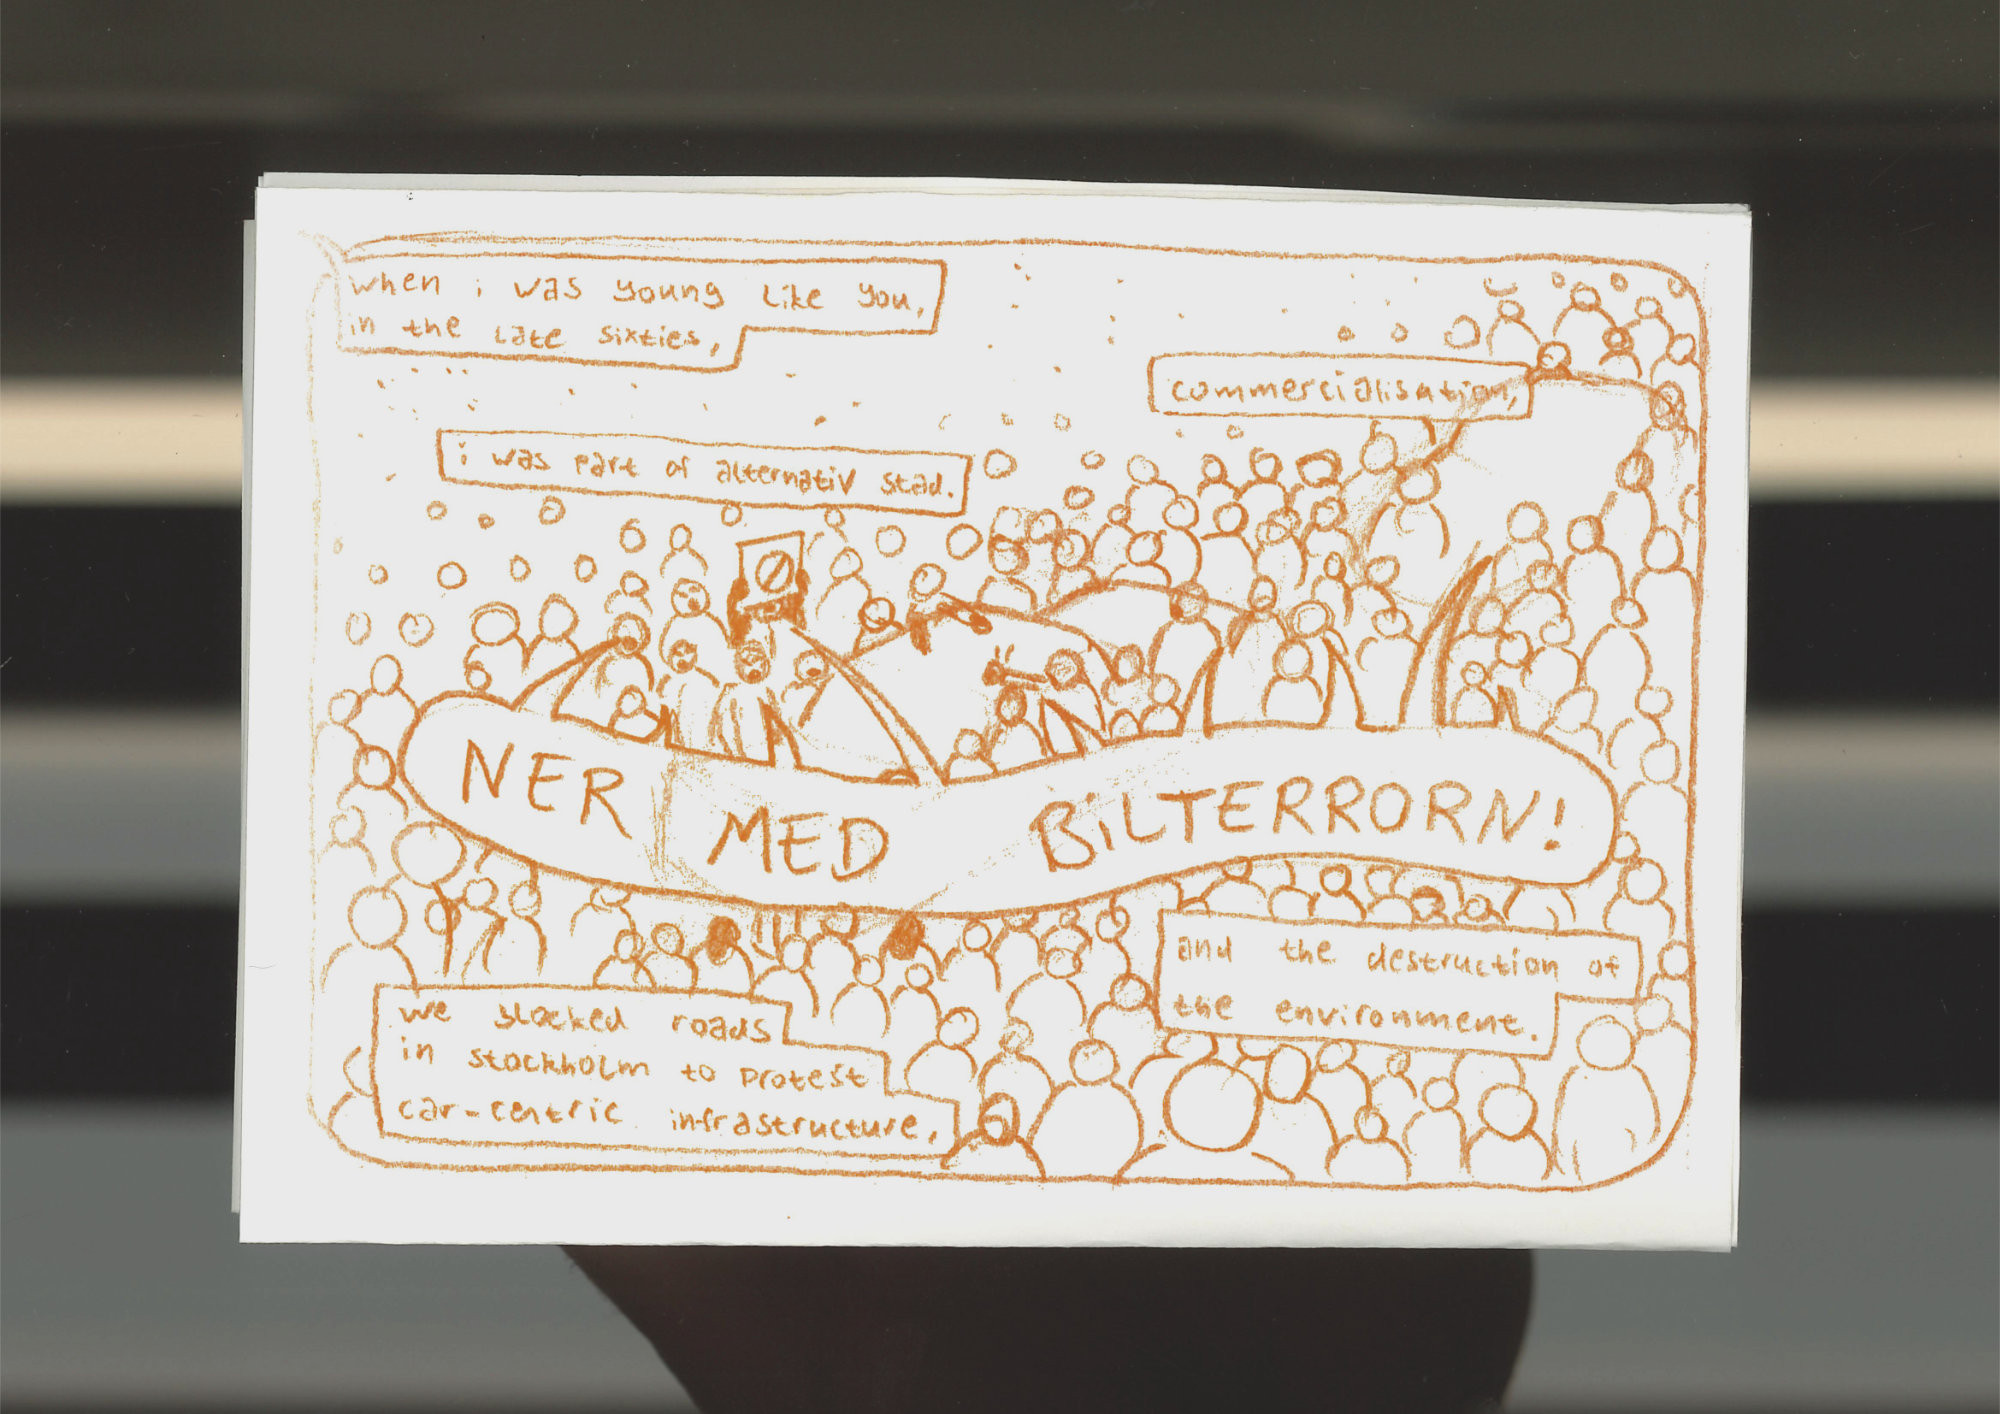 when i was young like you,
in the late sixties,
i was part of alternativ stad.
NER MED BILTERRORN!
we blocked roads
in stockholm to protest
car-centric infrastructure,
commercialisation,
and the destruction of
the environment.